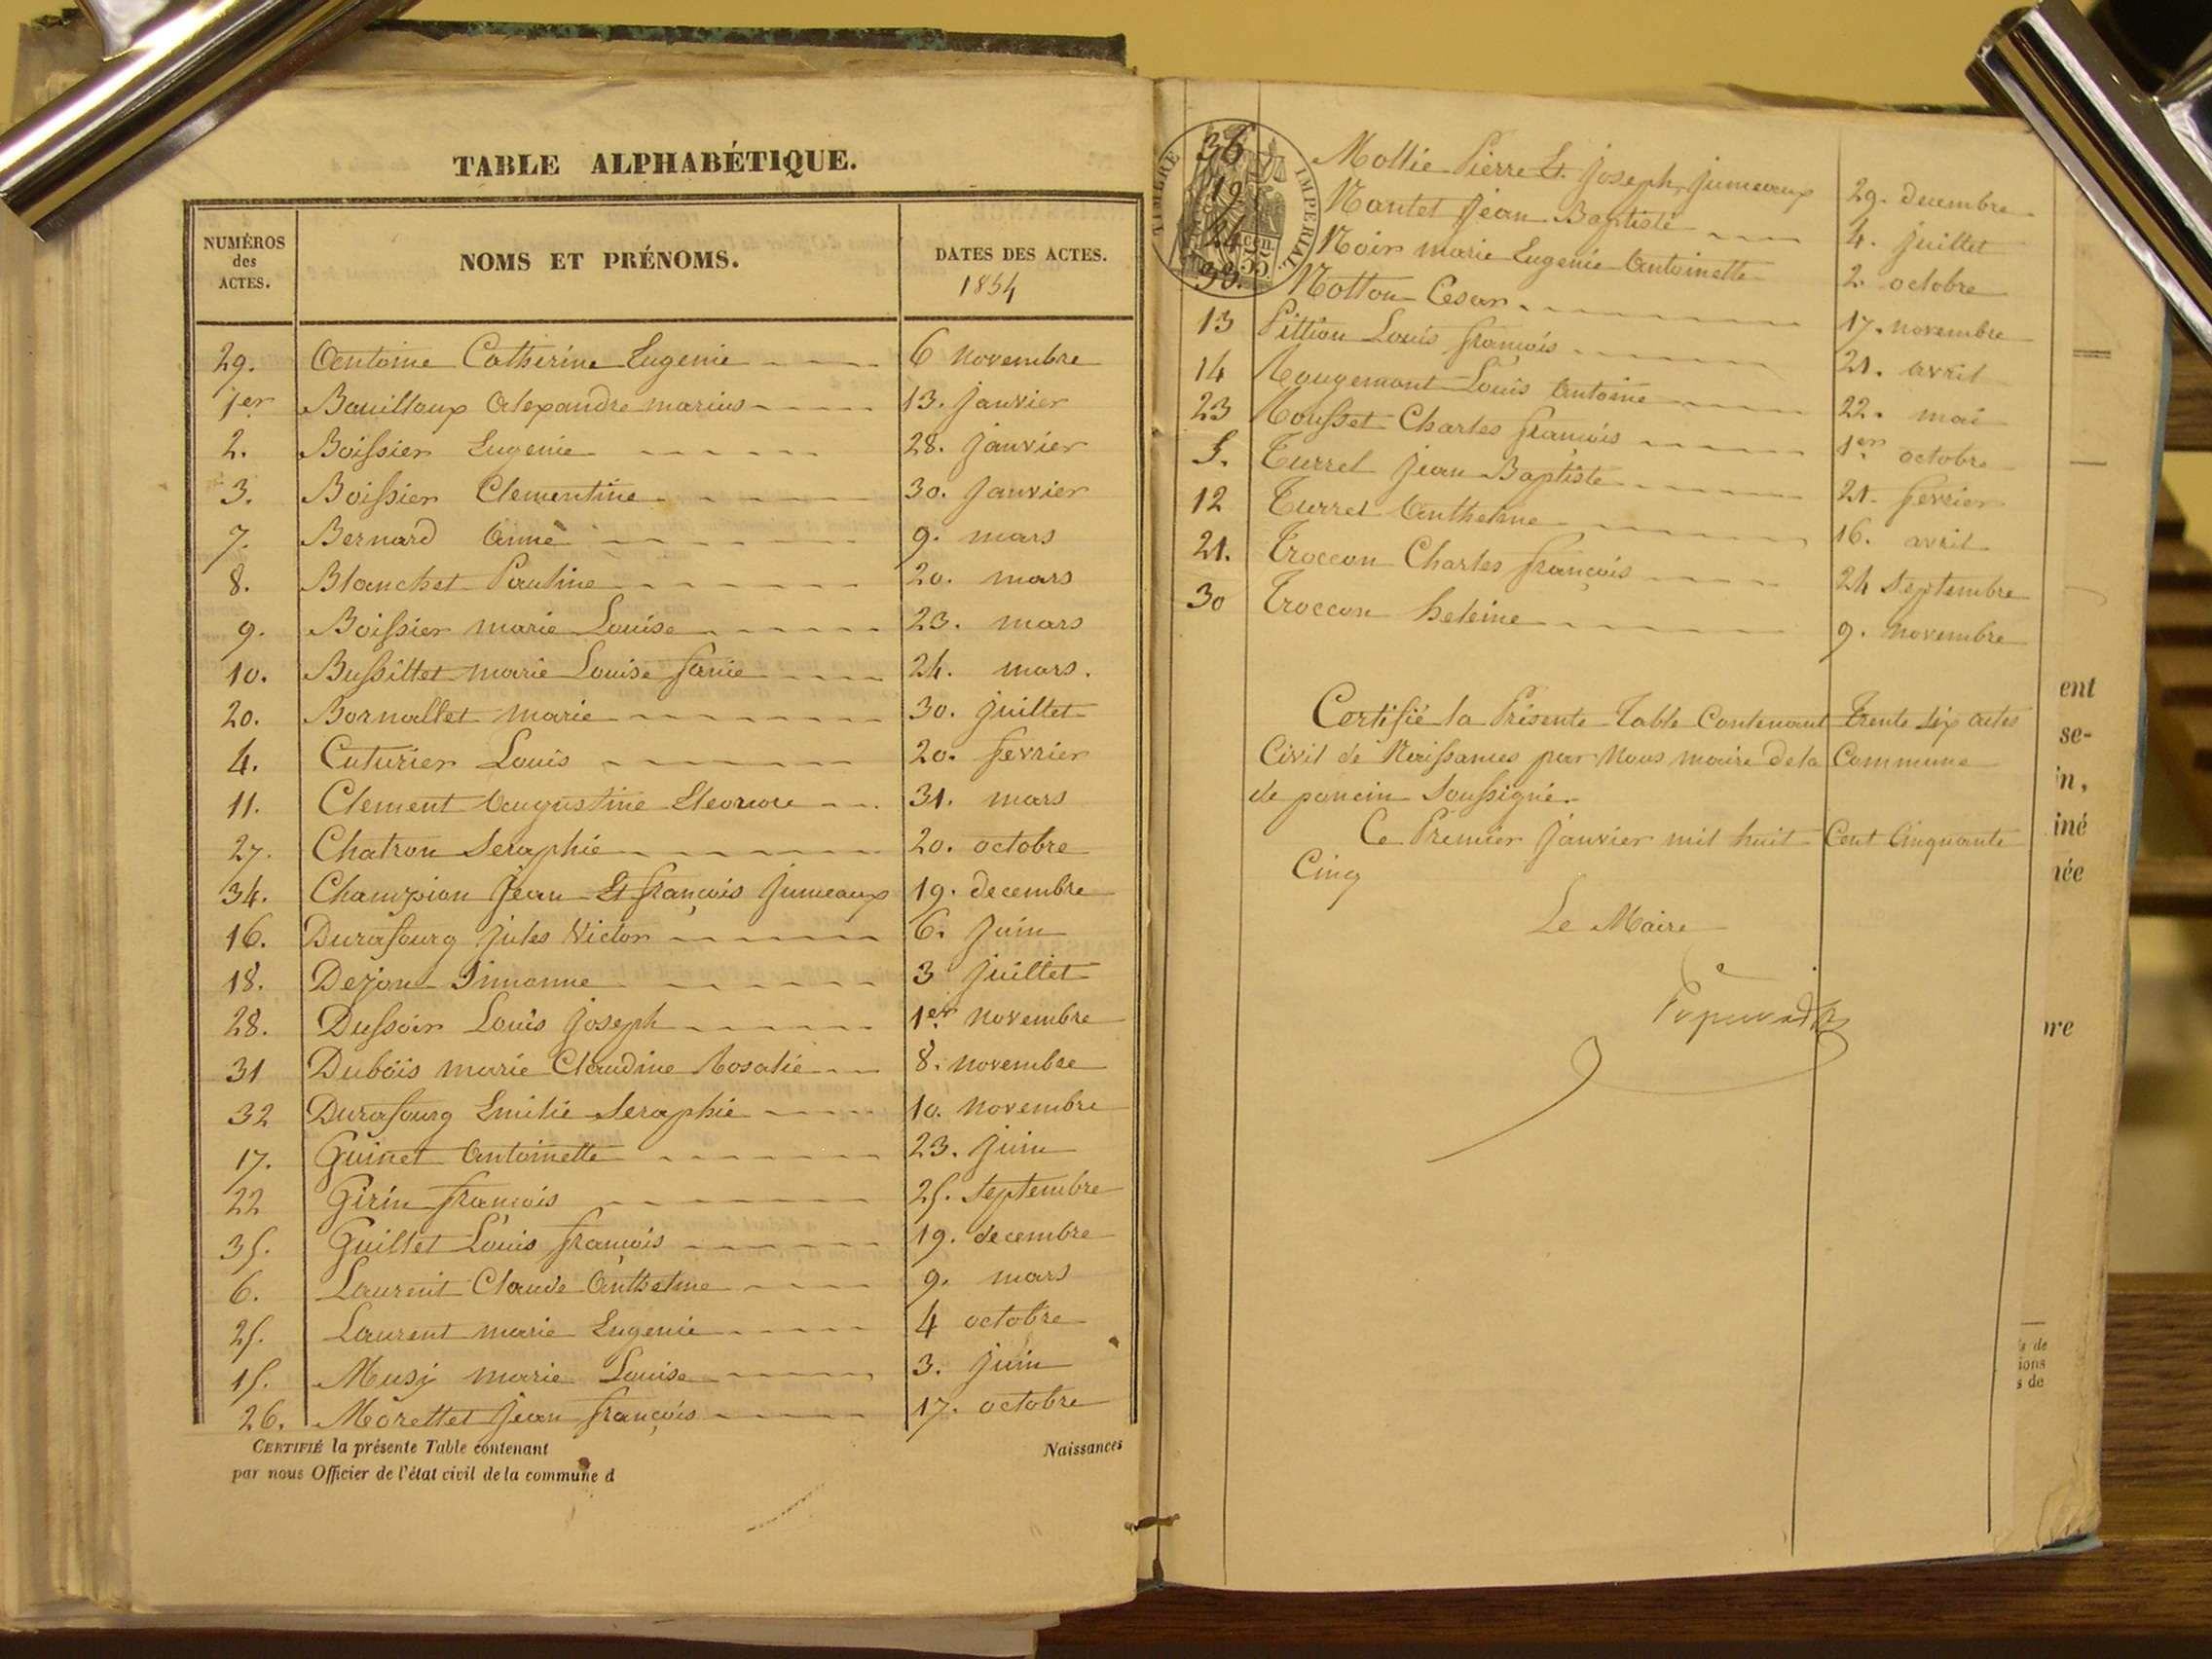 TABLE ALPHABÉTIQUE.
NUMÉROS des ACTES. NOMS ET PRÉNOMS. DATES DES ACTES. 1854
29. Antoine Catherine Eugenie 6 novembre
1er Bouilloux Alexandre marius 13. janvier
2. Boissier Eugenie 28. janvier
3. Boissier Clementine 30. janvier
7. Bernard Aimé 9. mars
8. Blanchet Pauline 20. mars
9. Boissier marie Louise 23. mars
10. Bussillet marie Louise fanie 24. mars.
20. Bornallet marie 30. juillet
4. Cuturier Louis 20. fevrier
11. Clement Augustine Eleonore 31. mars
27. Chatron Seraphie 20. octobre
34. Champion jean Et françois jumeaux 19. decembre
16. Durafourg jules Victor 6. juin
18. Dejon Simonne 3 juillet
28. Dussoir Louis joseph 1er novembre
31 Dubois marie Claudine Rosalie 8. novembre
32 Durafourg Emilie Seraphie 10. novembre
17. Guinet Antoinette 23. juin
22 Girin françois 25. septembre
35. Guillet Louis françois 19. decembre
6. Laurent Claude Anthelme 9. mars
25. Laurent marie Eugenie 4 octobre
15. Musy marie Louise 3. juin
26. Morettet jean françois 17. octobre
CERTIFIÉ la présente Table contenant Naissances
par nous Officier de l'état civil de la commune d
TIMBRE IMPERIAL
36 Mollie Pierre Et. joseph, jumeaux 29. decembre
19 Nantet jean Baptiste 4. juillet
24 Noir marie Eugenie Antoinette 2. octobre
33. Notton Cesar 17. novembre
13 Pittion Louis françois 21. avril
14 Rougemont Louis Antoine 22. mai
23 Rousset Charles françois 1er octobre
5. Turrel jean Baptiste 21. fevrier
12 Turrel Anthelme 16. avril
21. Troccon Charles françois 24 septembre
30 Troccon heleine 9. novembre
Certifié la Présente Table Contenant Trente Six actes
Civil de Naissances par Nous maire de la Commune
de poncin Soussigné.
Ce Premier janvier mil huit Cent Cinquante
Cinq
Le Maire
ent
se-
in,
iné
née
re
s de
ions
s de